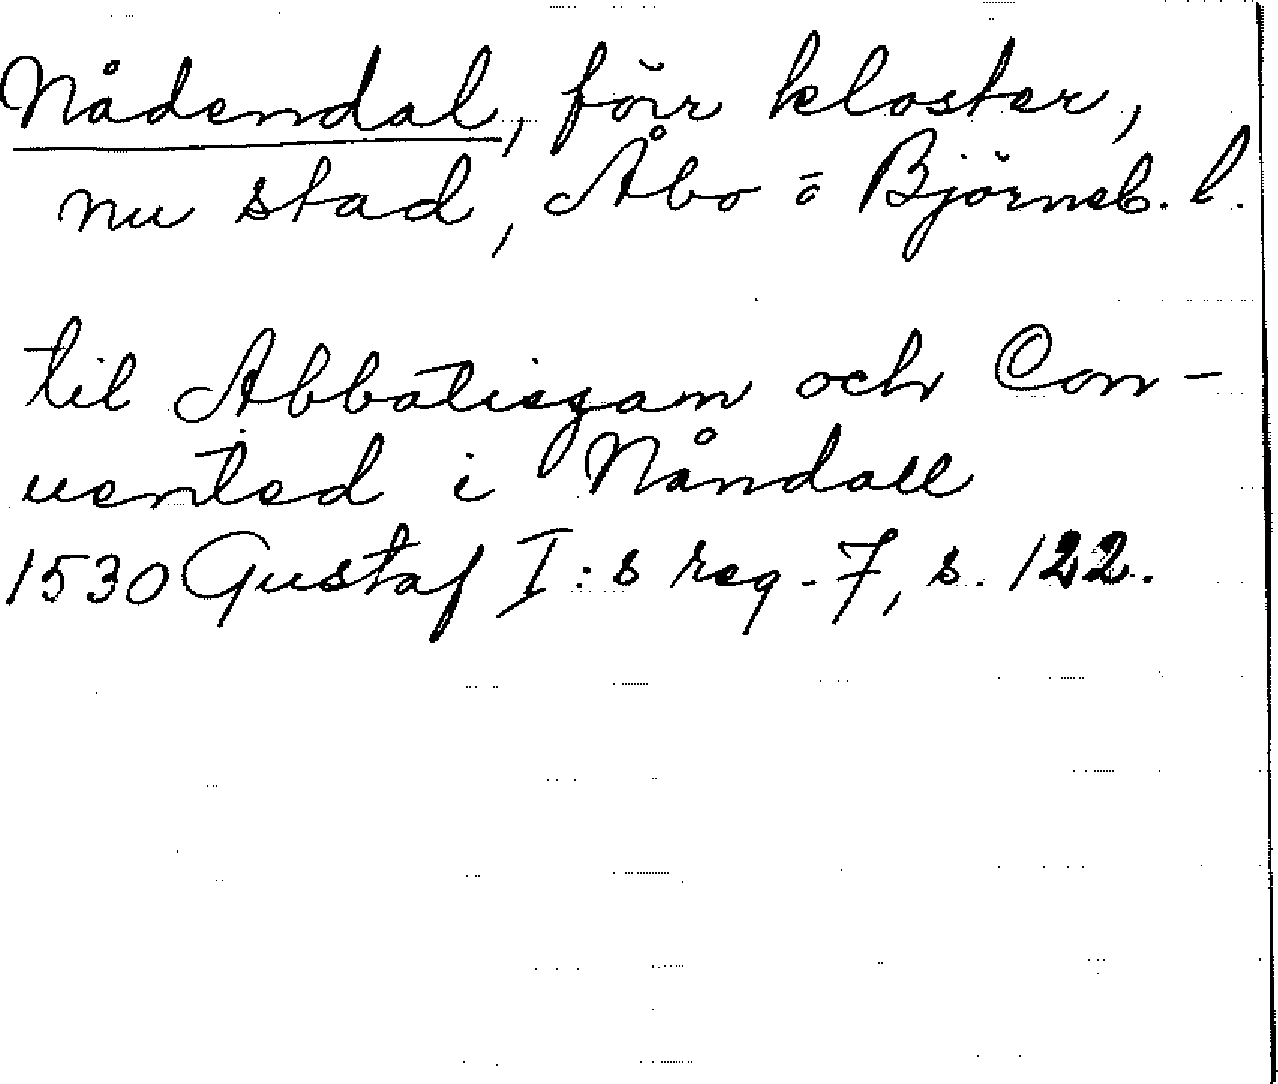 Nådendal, förr kloster,
nu stad, Åbo o Björneb. l.
til Abbatiszam och Con-
uented i Nåndall
1530 Gustaf I:s reg. 7, s. 122.